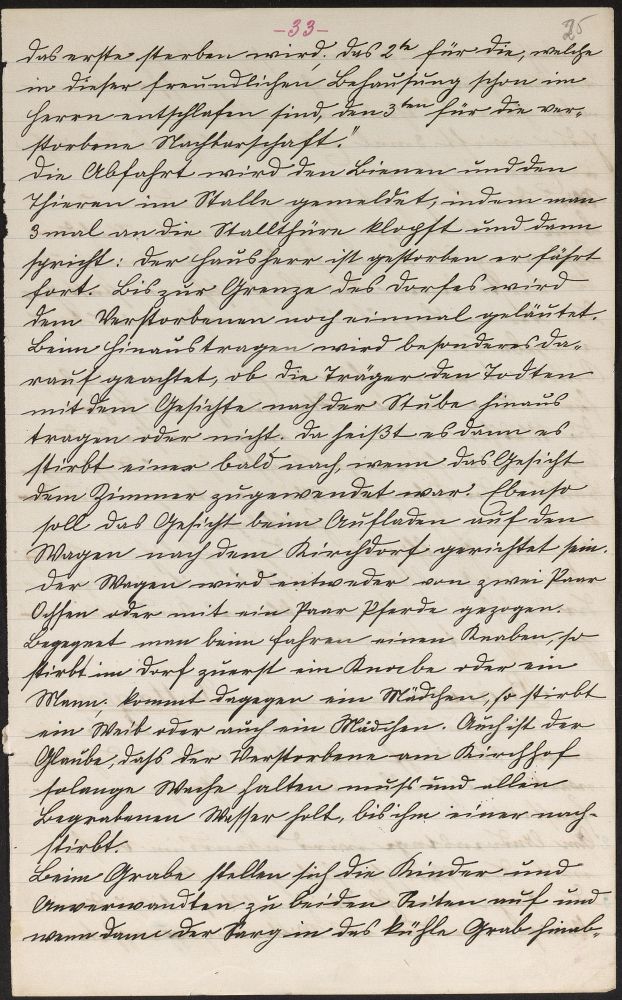 -33-
25
das erste sterben wird. das 2te für die, welche
in dieser freundlichen Behausung schon im
Herrn entschlafen sind, den 3ten für die ver-
storbene Nachbarschaft."
Die Abfahrt wird den Bienen und den
Thieren im Stalle gemeldet, indem man
3 mal an die Stallthüre klopft und dann
spricht: der Hausherr ist gestorben er fährt
fort. Bis zur Grenze des Dorfes wird
dem Verstorbenen noch einmal geläutet.
Beim Hinaustragen wird besonderes da-
rauf geachtet, ob die Träger den Todten
mit dem Gesichte nach der Stube hinaus
tragen oder nicht. Da heißt es dann es
stirbt einer bald nach, wenn das Gesicht
dem Zimmer zugewendet war. Ebenso
soll das Gesicht beim Aufladen auf den
Wagen nach dem Kirchdorf gerichtet sein.
Der Wagen wird entweder von zwei Paar
Ochsen oder mit ein Paar Pferde gezogen.
Begegnet man beim fahren einen Knaben, so
stirbt im Dorf zuerst ein Knabe oder ein
Mann; kommt dagegen ein Mädchen, so stirbt
ein Weib oder auch ein Mädchen. Auch ist der
Glaube, dass der Verstorbene am Kirchhof
solange Wache halten muss und allen
Begrabenen Wasser holt, bis ihm einer nach-
stirbt.
Beim Grabe stellen sich die Kinder und
Anverwandten zu beiden Seiten auf und
wenn dann der Sarg in das kühle Grab hinab-